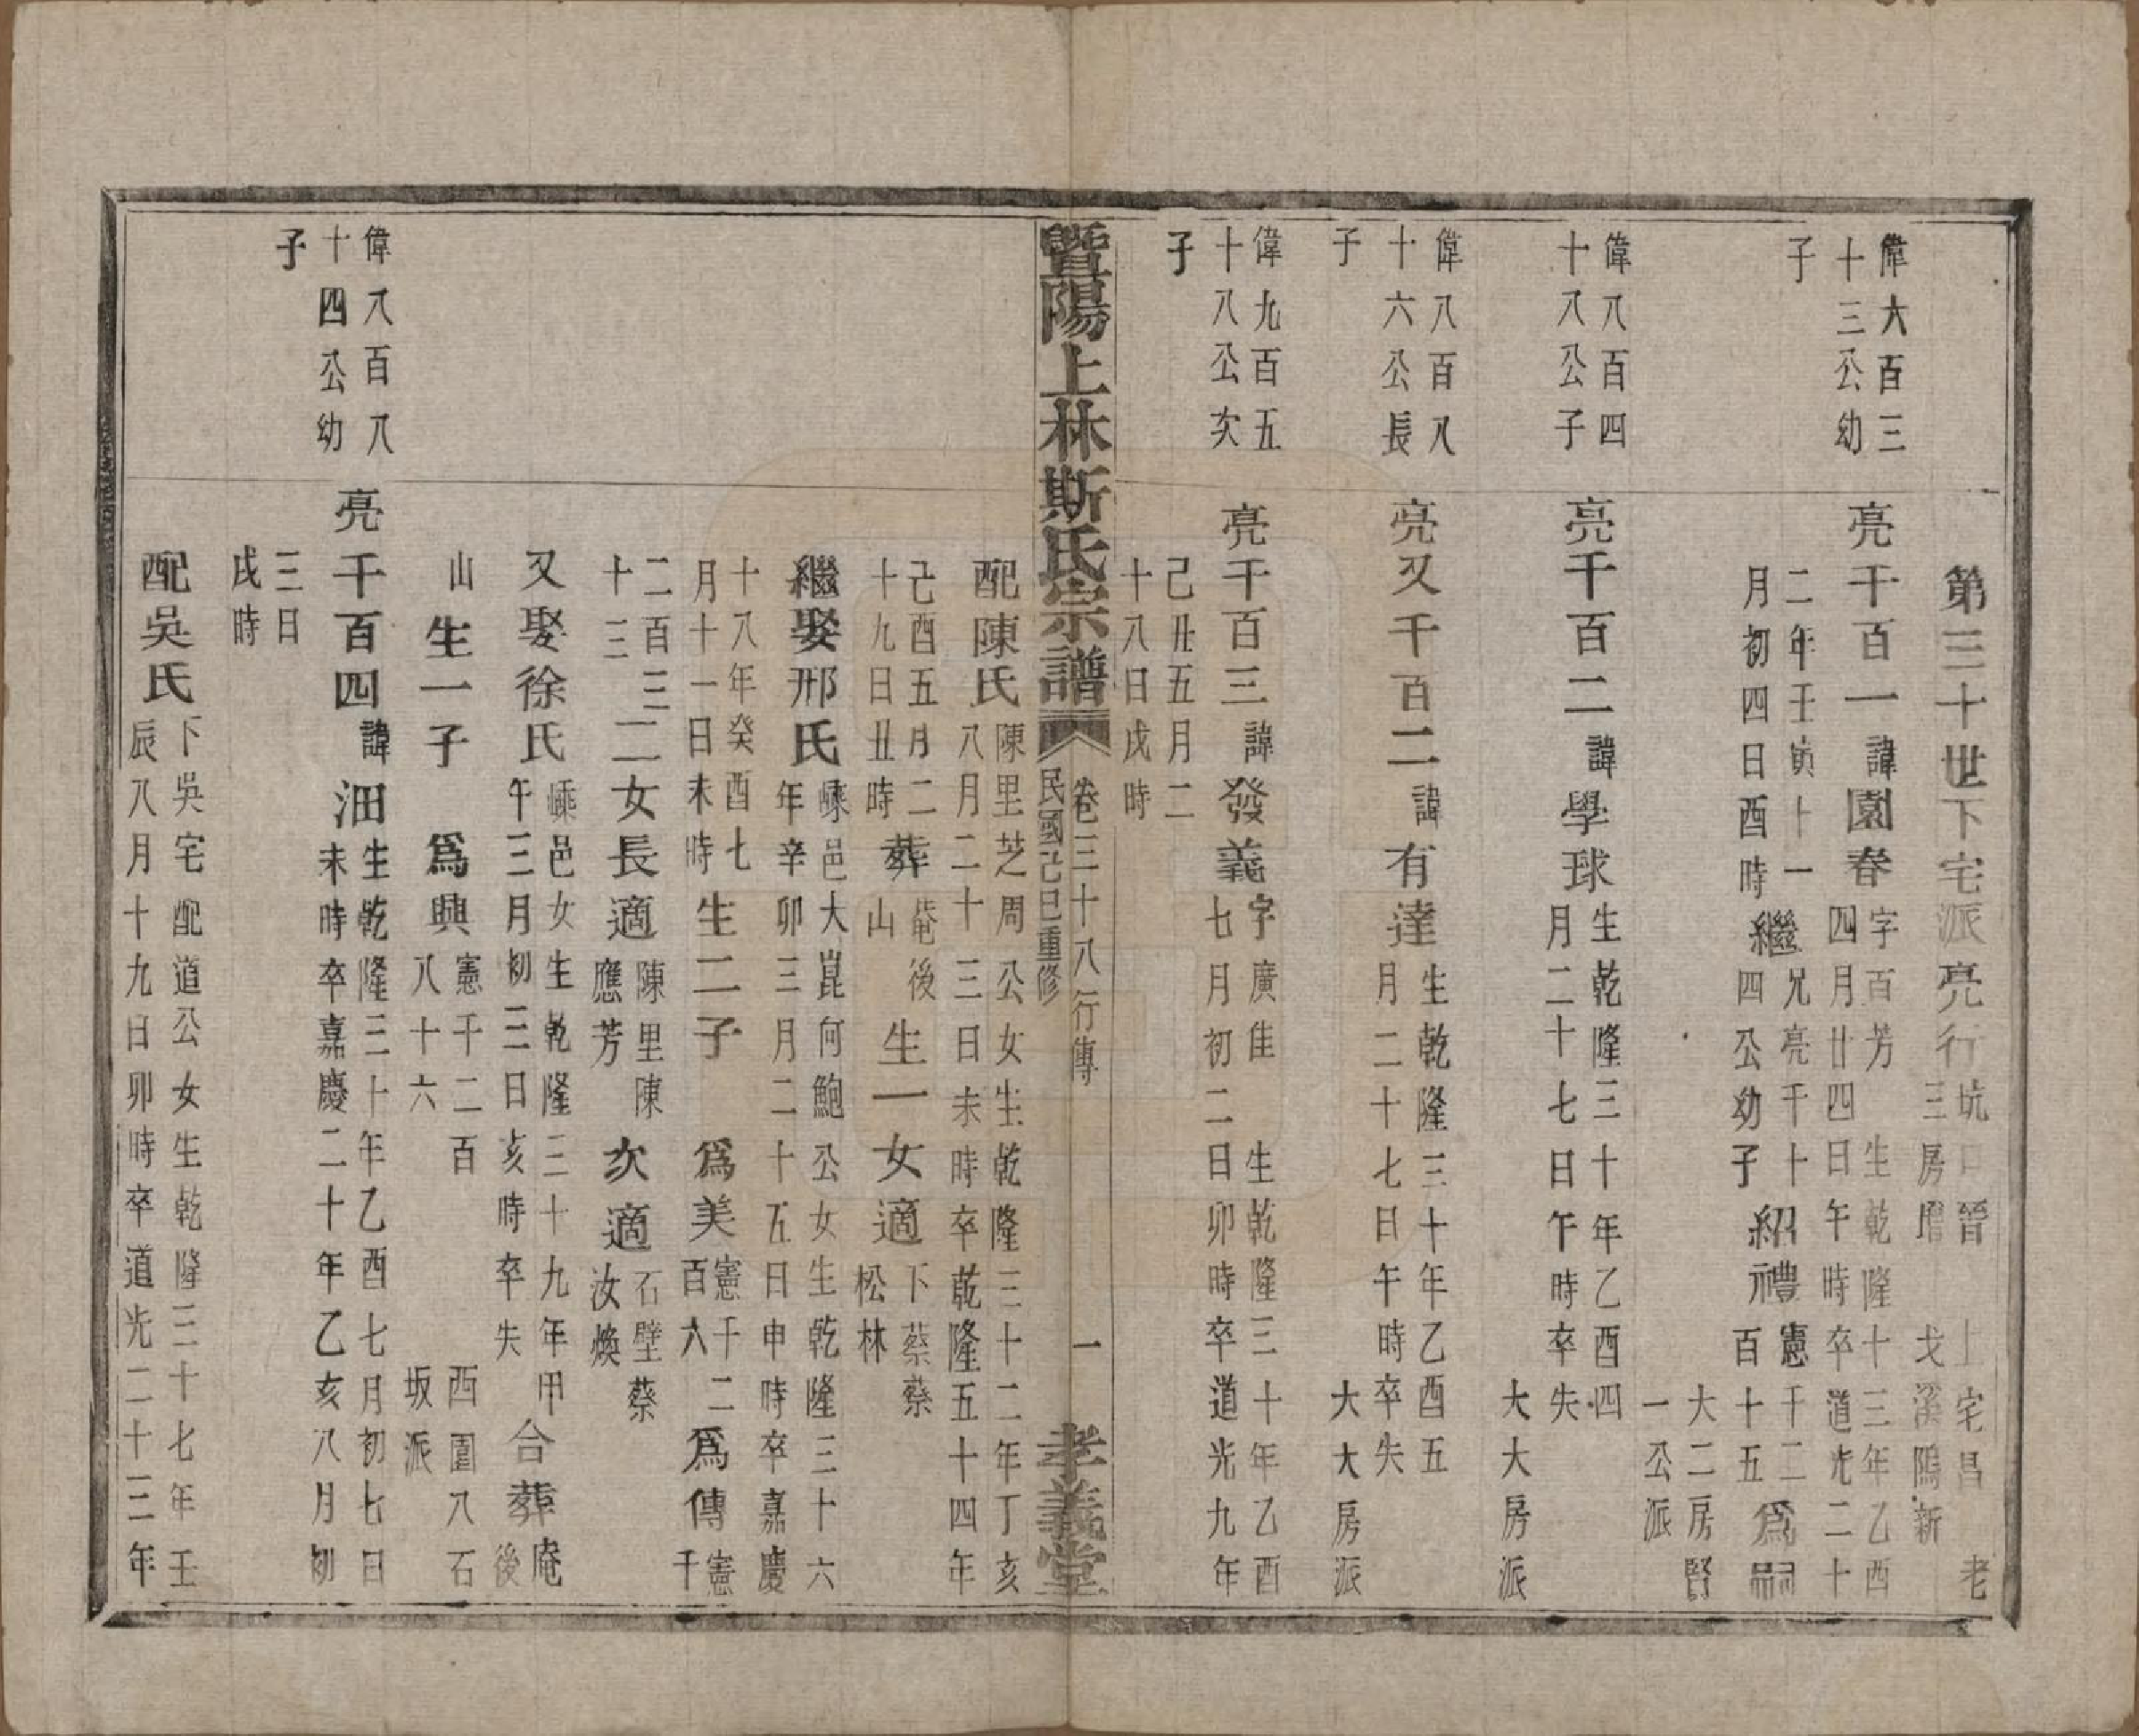 第三十世下宅派亮行 坑口晉 上宅昌 老
三房增 戈溪隖新
偉六百三
十三公幼
子
亮千百一諱園春 字百芳 生乾隆十三年乙酉
四月廿四日午時卒道光二十
二年壬寅十一
月初四日酉時
繼 兄亮千十
四公幼子
紹禮 憲千二
百十五
爲嗣
大二房賢
一公派
偉八百四
十八公子
亮千百二諱學球 生乾隆三十年乙酉四
月二十七日午時卒失
大大房派
偉八百八
十六公長
子
亮又千百二諱有達 生乾隆三十年乙酉五
月二十七日午時卒失
大大房派
偉九百五
十八公次
子
亮千百三諱發義 字廣佳 生乾隆三十年乙酉
七月初二日卯時卒道光九年
己丑五月二
十八日戌時
暨陽上林斯氏宗譜 卷三十八行傳 一
民國己巳重修
孝義堂
配陳氏 陳里芝周公女生乾隆三十二年丁亥
八月二十三日未時卒乾隆五十四年
己酉五月二
十九日丑時
葬 菴後
山
生一女適 下蔡蔡
松林
繼娶邢氏 嵊邑大崑何鮑公女生乾隆三十六
年辛卯三月二十五日申時卒嘉慶
十八年癸酉七
月十一日未時
生二子 爲美 憲千二
百六
爲傳 憲
千
二百三
十三
二女長適 陳里陳
應芳
次適 石壁蔡
汝煥
又娶徐氏 嵊邑女生乾隆三十九年甲
午三月初三日亥時卒失
合葬 庵
後
山 生一子 爲興 憲千二百
八十六
西園八石
坂派
偉八百八
十四公幼
子
亮千百四諱沺 生乾隆三十年乙酉七月初七日
未時卒嘉慶二十年乙亥八月初
三日
戌時
配吳氏 下吳宅配道公女生乾隆三十七年壬
辰八月十九日卯時卒道光二十三年